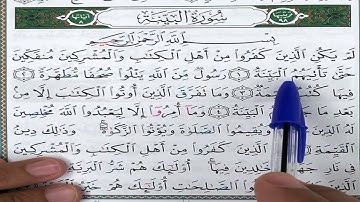 سُورَةُ الْبَيِّنَةِ
بِسْمِ اللَّهِ الرَّحْمَٰنِ الرَّحِيمِ
لَمْ يَكُنِ الَّذِينَ كَفَرُوا مِنْ أَهْلِ الْكِتَابِ وَالْمُشْرِكِينَ مُنْفَكِّينَ
حَتَّىٰ تَأْتِيَهُمُ الْبَيِّنَةُ ١ رَسُولٌ مِنَ اللَّهِ يَتْلُوا صُحُفًا مُطَهَّرَةً ٢
فِيهَا كُتُبٌ قَيِّمَةٌ ٣ وَمَا تَفَرَّقَ الَّذِينَ أُوتُوا الْكِتَابَ إِلَّا مِنْ
بَعْدِ مَا الْبَيِّنَةُ ٤ وَمَا أُمِرُوا إِلَّا لِيَعْبُدُوا اللَّهَ مُخْلِصِينَ
وَيُقِيمُوا الصَّلَاةَ وَيُؤْتُوا وَذَٰلِكَ دِينُ
الْقَيِّمَةِ كَفَرُوا مِنْ أَهْلِ الْكِتَابِ وَالْمُشْرِكِينَ
فِي نَارِ خَالِدِينَ فِيهَا أُولَٰئِكَ هُمْ شَرُّ الْبَرِيَّةِ
الصَّالِحَاتِ أُولَٰئِكَ هُمْ خَيْرُ